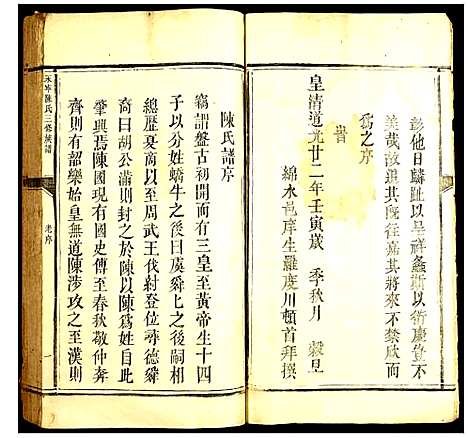 彭他日麟趾以呈祥螽斯以衍慶豈不
美哉故追其既往嘉其將來不禁欣而
為之序
時
皇清道光廿二年壬寅歲 季秋月 穀旦
綿水邑庠生羅慶川頓首拜撰
陳氏譜序
竊謂盤古初開而有三皇至黃帝生十四
子以分姓蟜牛之後曰虞舜之後嗣相
總歷夏商而以至周武王伐紂登位尋德舜
裔曰胡公滿則封之於陳以陳為姓自此
肇興焉陳國現有國史傳至春秋敬仲奔
齊則有韶樂始皇無道陳涉攻之至漢則
陳氏三修族譜
老序
一